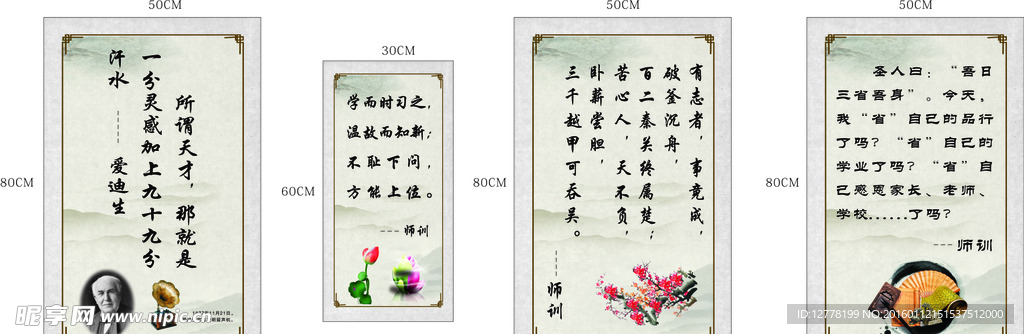 50CM
80CM
所谓天才，那就是
一分灵感加上九十九分
汗水
----- 爱迪生
30CM
60CM
学而时习之，
温故而知新；
不耻下问，
方能上位。
--- 师训
50CM
80CM
有志者，事竟成，
破釜沉舟，
百二秦关终属楚；
苦心人，天不负，
卧薪尝胆，
三千越甲可吞吴。
----- 师训
50CM
80CM
圣人曰：“吾日
三省吾身”。今天，
我“省”自己的品行
了吗？“省”自己的
学业了吗？“省”自
己感恩家长、老师、
学校......了吗？
---师训
昵享网 www.nipic.cn
ID:12778199 NO:20160112151537512000